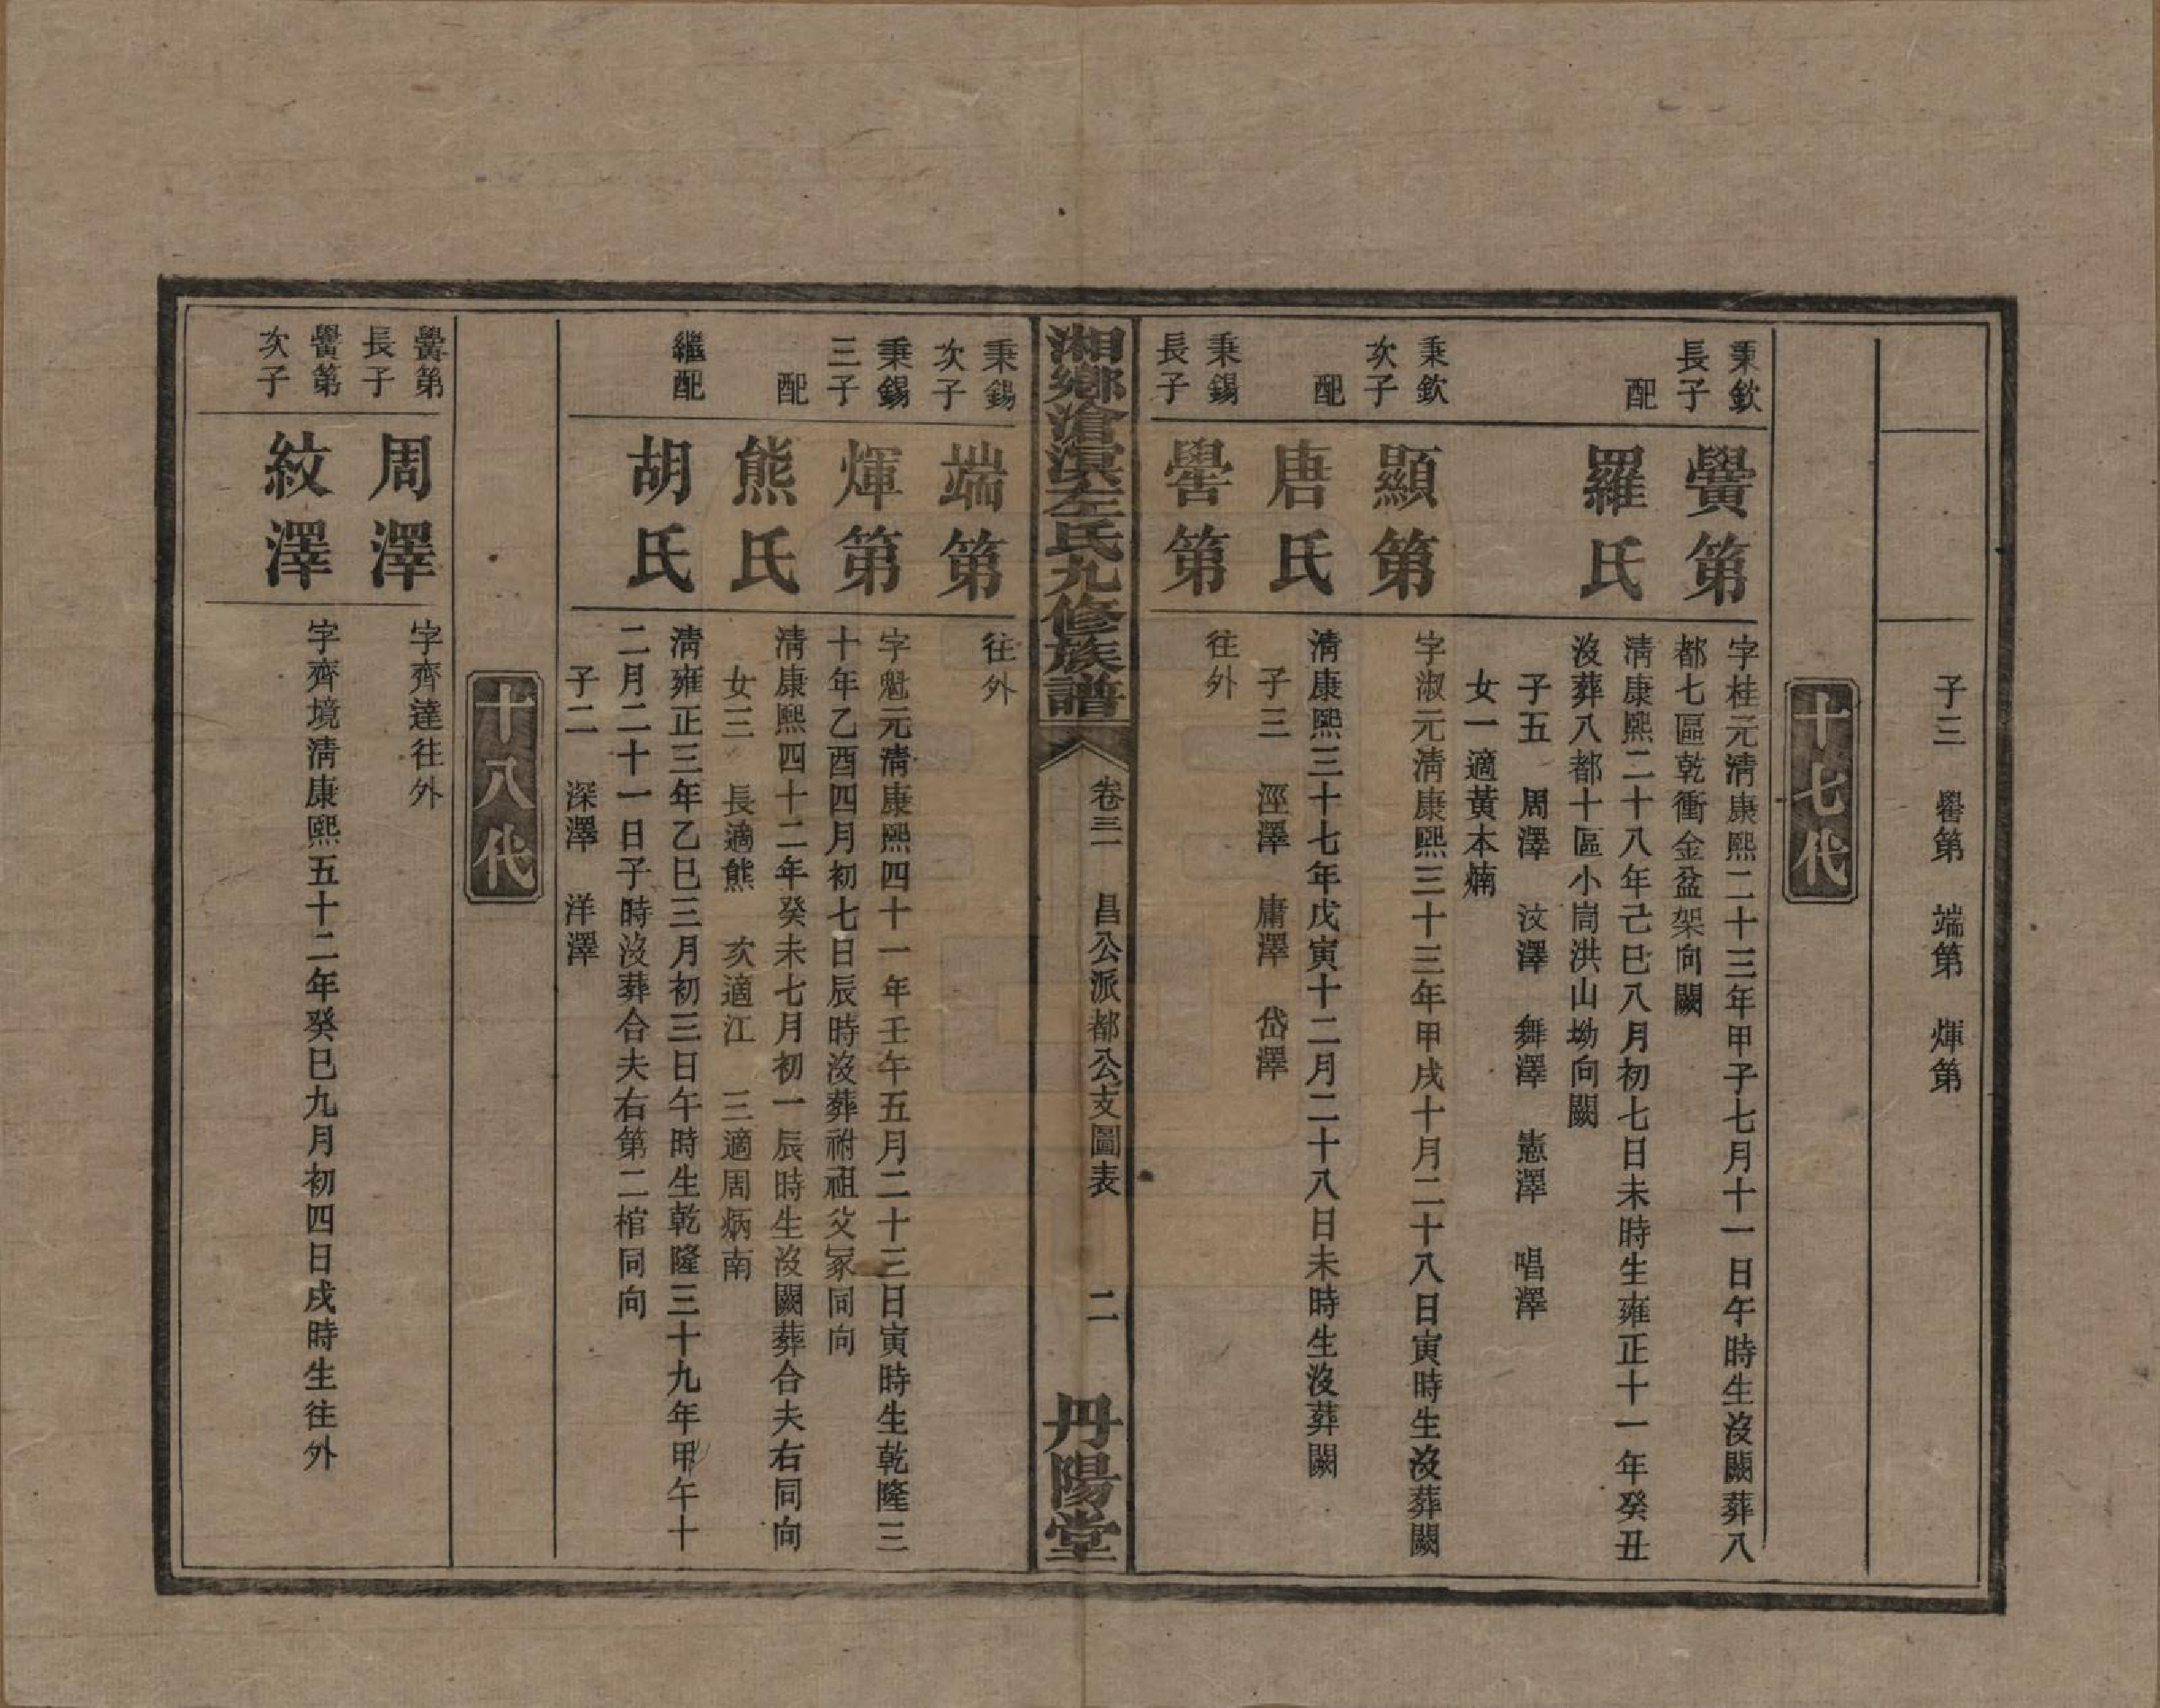 子三　嚳第　端第　煇第
十七代
秉欽
長子
黌第
字桂元清康熙二十三年甲子七月十一日午時生沒闕葬八
都七區乾衝金盆架向闕
配
羅氏
清康熙二十八年己巳八月初七日未時生雍正十一年癸丑
沒葬八都十區小崗洪山坳向闕
子五　周澤　汶澤　舞澤　憲澤　唱澤
女一適黃本煵
秉欽
次子
顯第
字淑元清康熙三十三年甲戌十月二十八日寅時生沒葬闕
配
唐氏
清康熙三十七年戊寅十二月二十八日未時生沒葬闕
子三　涇澤　庸澤　岱澤
秉錫
長子
嚳第
往外
湘鄉滄溟左氏九修族譜
卷三　昌公派都公支圖表
二
丹陽堂
秉錫
次子
端第
往外
秉錫
三子
煇第
字魁元清康熙四十一年壬午五月二十三日寅時生乾隆三
十年乙酉四月初七日辰時沒葬祔祖父冢同向
配
熊氏
清康熙四十二年癸未七月初一辰時生沒闕葬合夫右同向
女三　長適熊　次適江　三適周炳南
繼配
胡氏
清雍正三年乙巳三月初三日午時生乾隆三十九年甲午十
二月二十一日子時沒葬合夫右第二棺同向
子二　深澤　洋澤
十八代
黌第
長子
周澤
字齊達往外
黌第
次子
紋澤
字齊境清康熙五十二年癸巳九月初四日戌時生往外